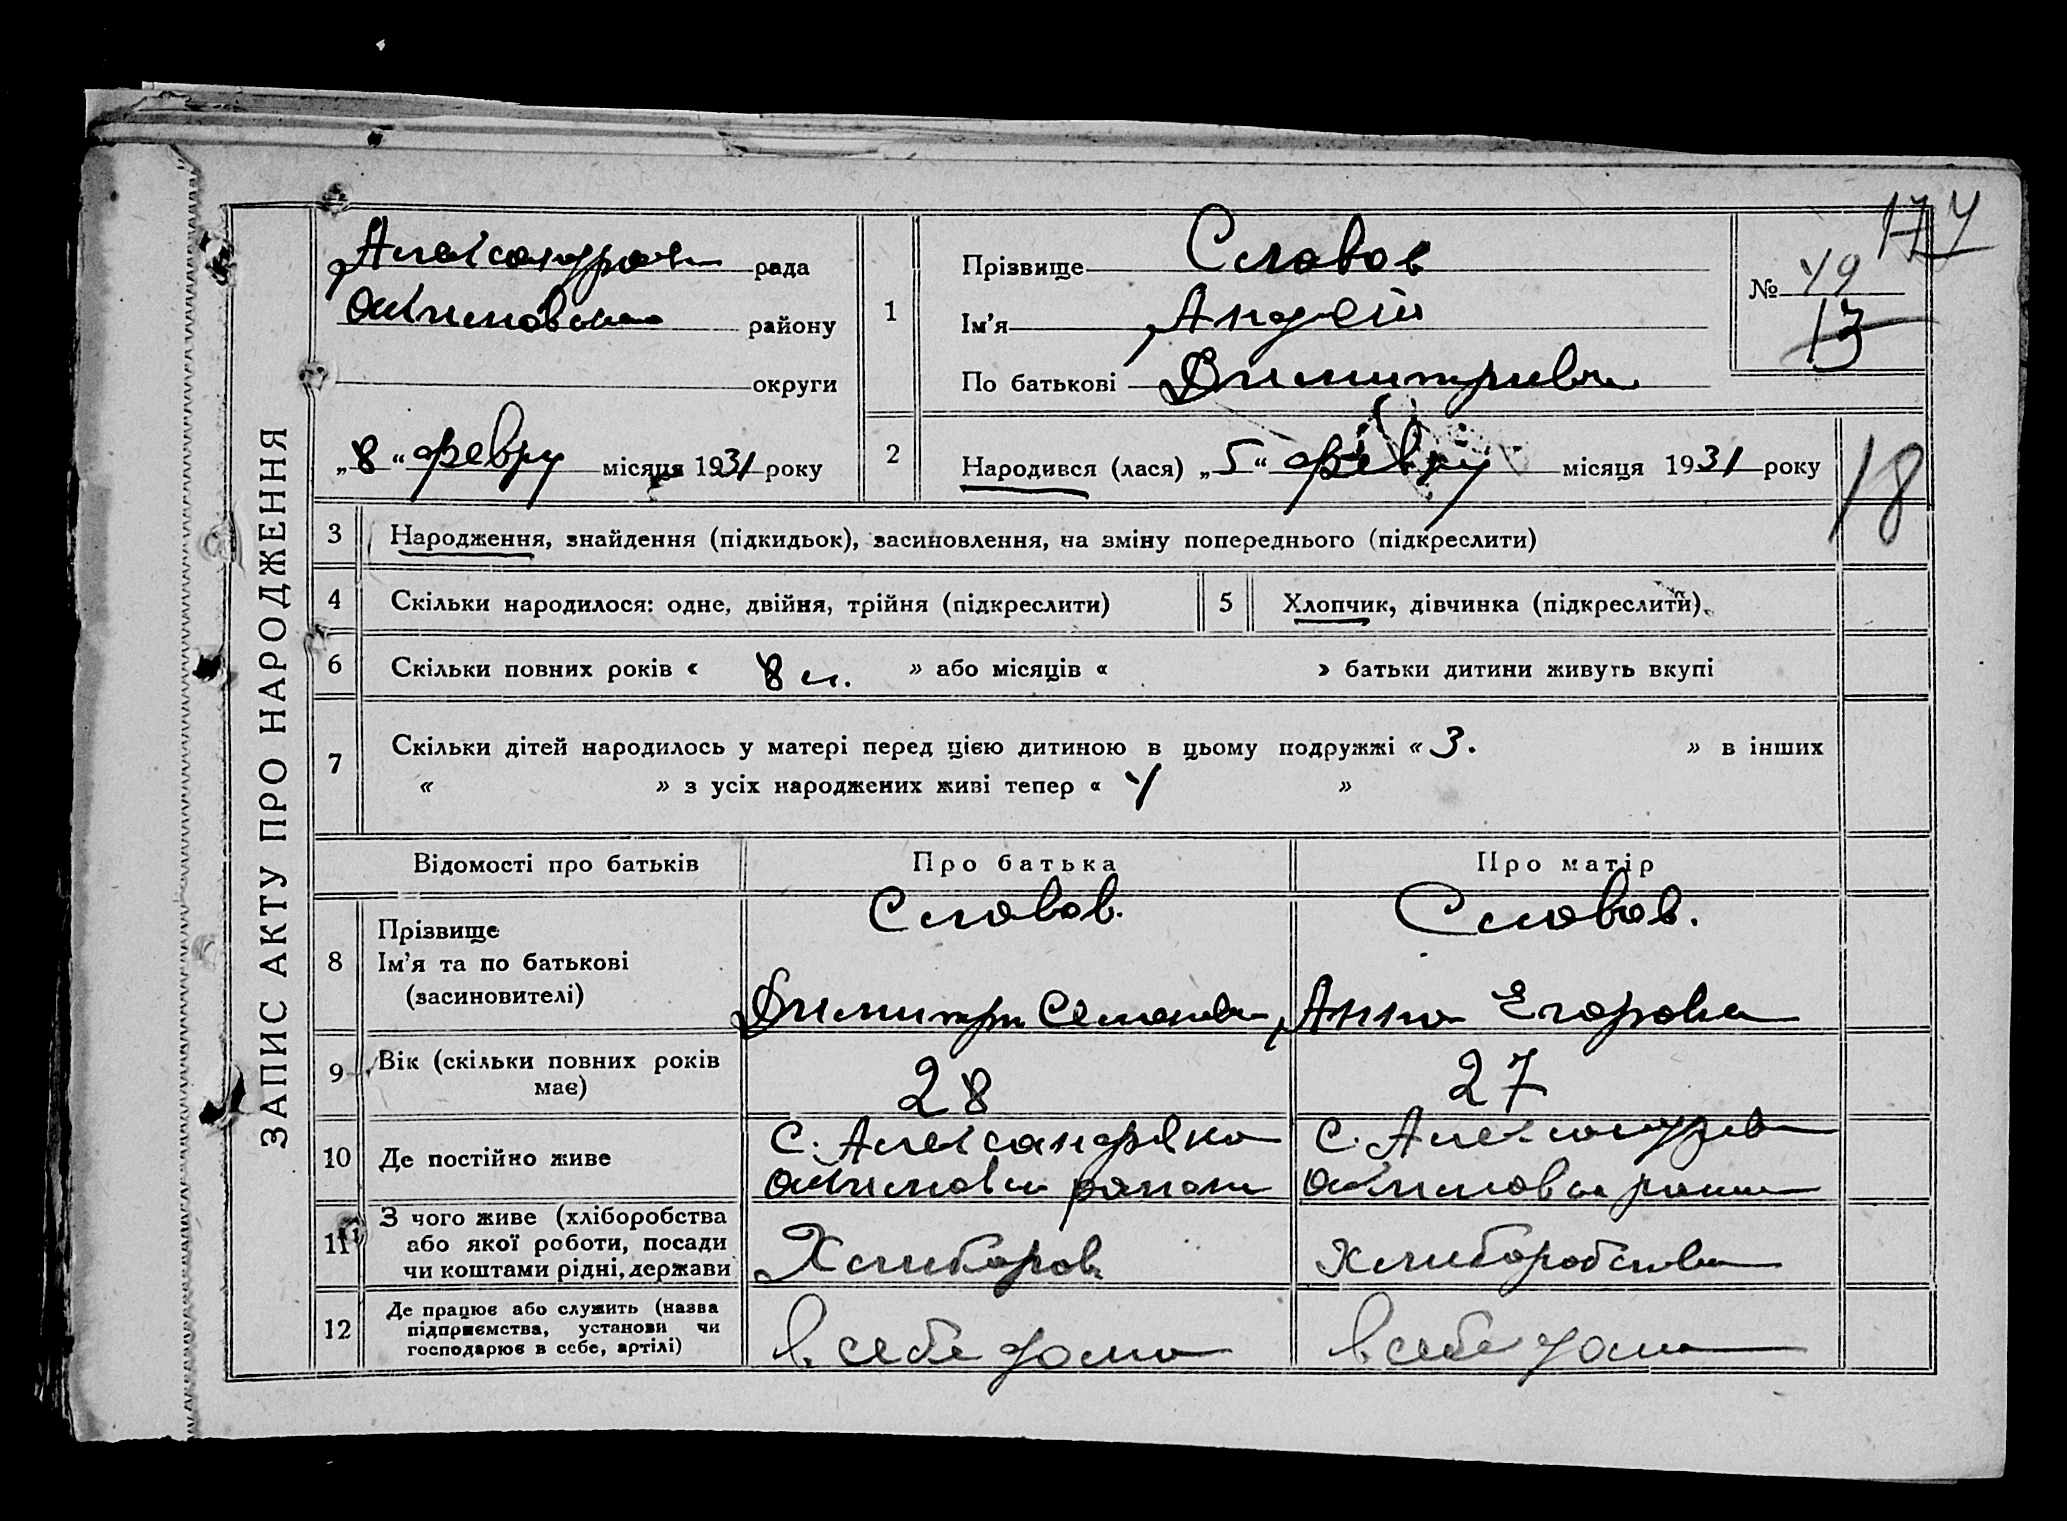 ЗАПИС АКТУ ПРО НАРОДЖЕННЯ
рада
району
округи
„8“ февр місяця 1931 року
1
Прізвище Славов
Ім’я Андрей
По батькові Димитриевич
№ 49
13
174
2
Народився (лася) „5“ февр місяця 1931 року
18
3 Народження, знайдення (підкидьок), засиновлення, на зміну попереднього (підкреслити)
4 Скільки народилося: одне, двійня, трійня (підкреслити)
5 Хлопчик, дівчинка (підкреслити)
6 Скільки повних років « 8 л. » або місяців « » батьки дитини живуть вкупі
7 Скільки дітей народилось у матері перед цією дитиною в цьому подружжі « 3. » в інших
« » з усіх народжених живі тепер « 4 »
Відомості про батьків
Про батька
Про матір
8 Прізвище
Ім’я та по батькові
(засиновителі)
Славов.
Димитри Семенов
Славов.
Анна Егорова
9 Вік (скільки повних років
має)
28
27
10 Де постійно живе
с. Александровка
с.
11 З чого живе (хліборобства
або якої роботи, посади
чи коштами рідні, держави
Хлибороб
Хлиборобство
12 Де працює або служить (назва
підприємства, установи чи
господарює в себе, артілі)
в себе дома
в себе дома